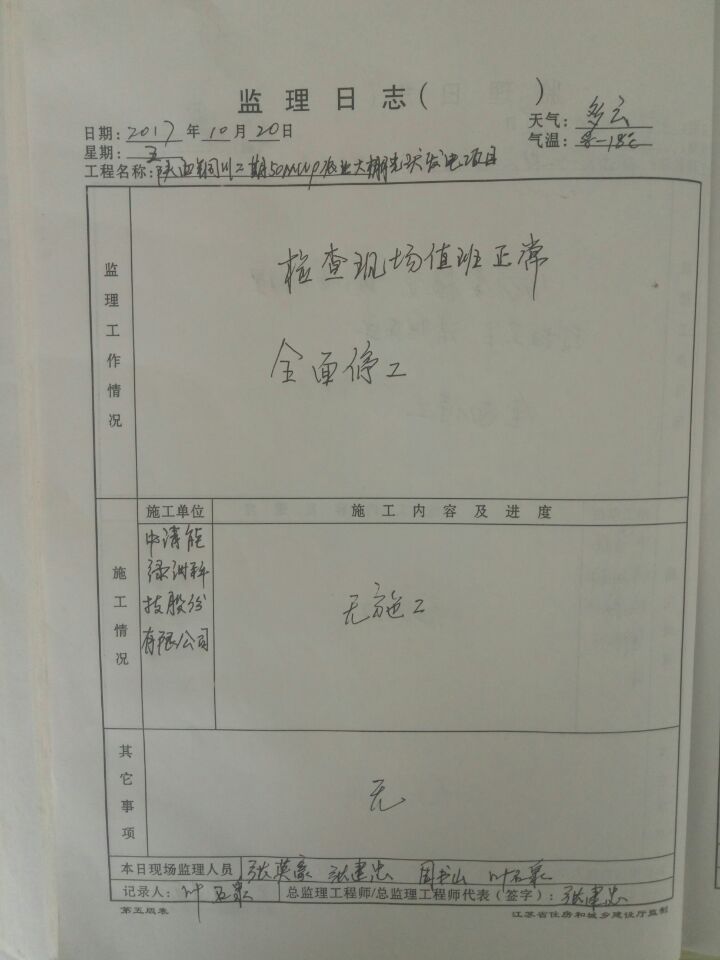 监理日志( )
日期: 2017 年 10 月 20 日
天气: 多云
星期: 五
气温: 8-18℃
工程名称: 陕西铜川二期50MWp农业大棚光伏发电项目
监理工作情况
检查现场值班正常
全面停工
施工情况
施工单位
施工内容及进度
中清能
绿洲科
技股份
有限公司
无施工
其它事项
无
本日现场监理人员 张英豪 张建忠 周书山
记录人: 叶 总监理工程师/总监理工程师代表(签字): 张建忠
第五版表
江苏省住房和城乡建设厅监制